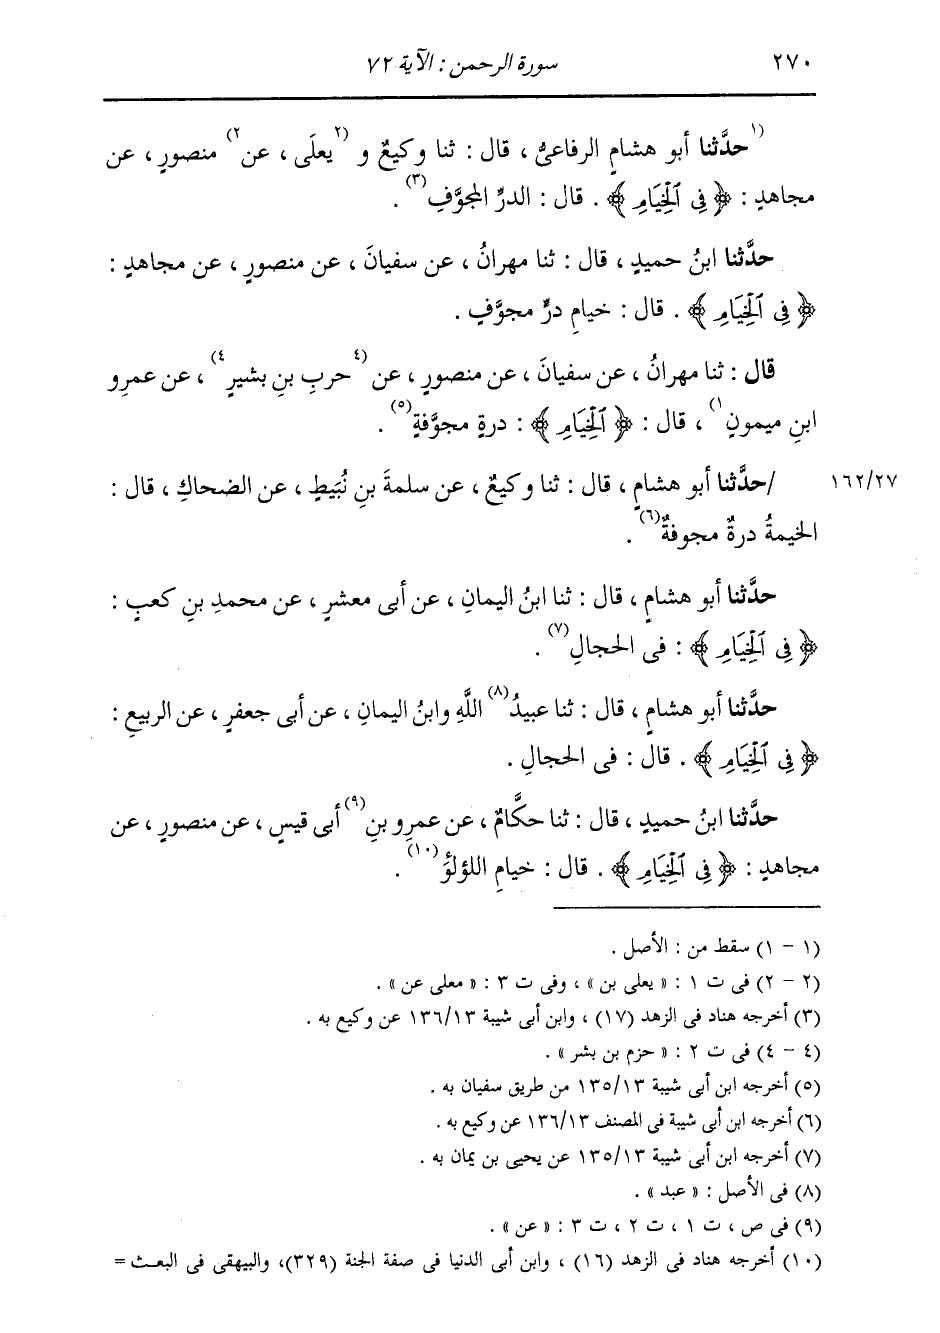 ٢٧٠ سورة الرحمن : الآية ٧٢
(١حدَّثنا أبو هشامٍ الرفاعىُّ ، قال : ثنا وكيعٌ و (٢يعلَى ، عن٢) منصورٍ ، عن
مجاهدٍ : ﴿ فِى ٱلْخِيَامِ ﴾ . قال : الدرِّ المجوَّفِ(٣) .
حدَّثنا ابنُ حميدٍ ، قال : ثنا مهرانُ ، عن سفيانَ ، عن منصورٍ ، عن مجاهدٍ :
﴿ فِى ٱلْخِيَامِ ﴾ . قال : خيامِ درٍّ مجوَّفٍ .
قال : ثنا مهرانُ ، عن سفيانَ ، عن منصورٍ ، عن (٤حربِ بنِ بشيرٍ٤) ، عن عمرِو
ابنِ ميمونٍ١) ، قال : ﴿ ٱلْخِيَامِ ﴾ : درةٍ مجوَّفةٍ(٥) .
١٦٢/٢٧ /حدَّثنا أبو هشامٍ ، قال : ثنا وكيعٌ ، عن سلمةَ بنِ نُبَيطٍ ، عن الضحاكِ ، قال :
الخيمةُ درةٌ مجوفةٌ(٦) .
حدَّثنا أبو هشامٍ ، قال : ثنا ابنُ اليمانِ ، عن أبى معشرٍ ، عن محمدِ بنِ كعبٍ :
﴿ فِى ٱلْخِيَامِ ﴾ : فى الحجالِ(٧) .
حدَّثنا أبو هشامٍ ، قال : ثنا عبيدُ(٨) اللَّهِ وابنُ اليمانِ ، عن أبى جعفرٍ ، عن الربيعِ :
﴿ فِى ٱلْخِيَامِ ﴾ . قال : فى الحجالِ .
حدَّثنا ابنُ حميدٍ ، قال : ثنا حكَّامٌ ، عن عمرِو بنِ(٩) أبى قيسٍ ، عن منصورٍ ، عن
مجاهدٍ : ﴿ فِى ٱلْخِيَامِ ﴾ . قال : خيامِ اللؤلؤَ(١٠) .
(١ - ١) سقط من : الأصل .
(٢ - ٢) فى ت ١ : « يعلى بن » ، وفى ت ٣ : « معلى عن » .
(٣) أخرجه هناد فى الزهد (١٧) ، وابن أبى شيبة ١٣٦/١٣ عن وكيع به .
(٤ - ٤) فى ت ٢ : « حزم بن بشر » .
(٥) أخرجه ابن أبى شيبة ١٣٥/١٣ من طريق سفيان به .
(٦) أخرجه ابن أبى شيبة فى المصنف ١٣٦/١٣ عن وكيع به .
(٧) أخرجه ابن أبى شيبة ١٣٥/١٣ عن يحيى بن يمان به .
(٨) فى الأصل : « عبد » .
(٩) فى ص ، ت ١ ، ت ٢ ، ت ٣ : « عن » .
(١٠) أخرجه هناد فى الزهد (١٦) ، وابن أبى الدنيا فى صفة الجنة (٣٢٩)، والبيهقى فى البعث =